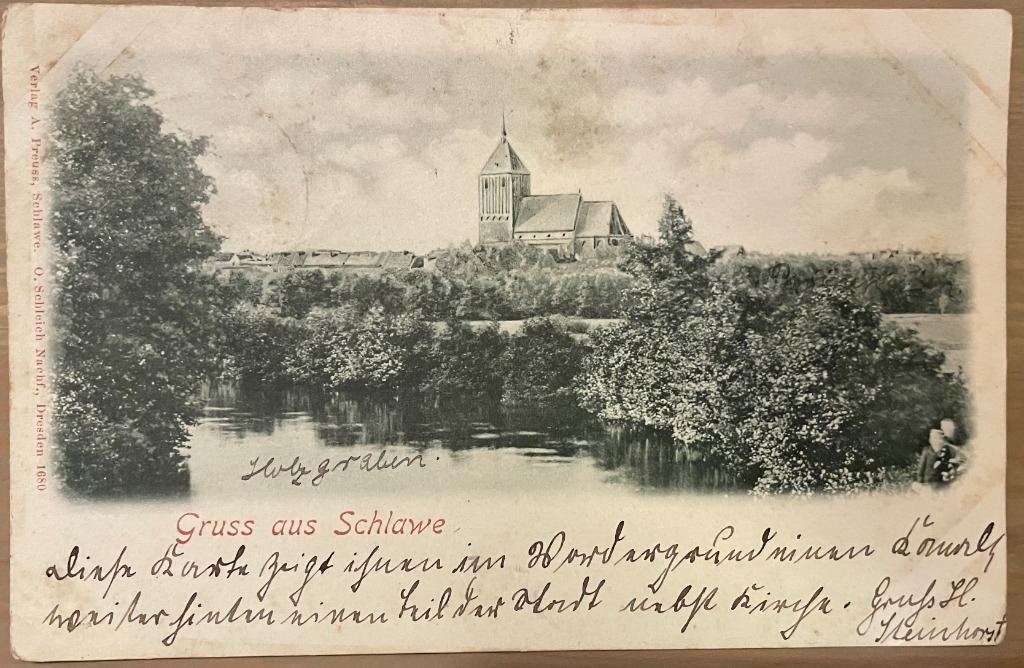 Verlag A. Preuss, Schlawe. O. Schleich Nachf., Dresden 1680
Holzgraben.
Gruss aus Schlawe
Diese Karte zeigt ihnen im Vordergrund einen Kanal,
weiter hinten einen Teil der Stadt nebst Kirche. Gruß H.
Steinhorst